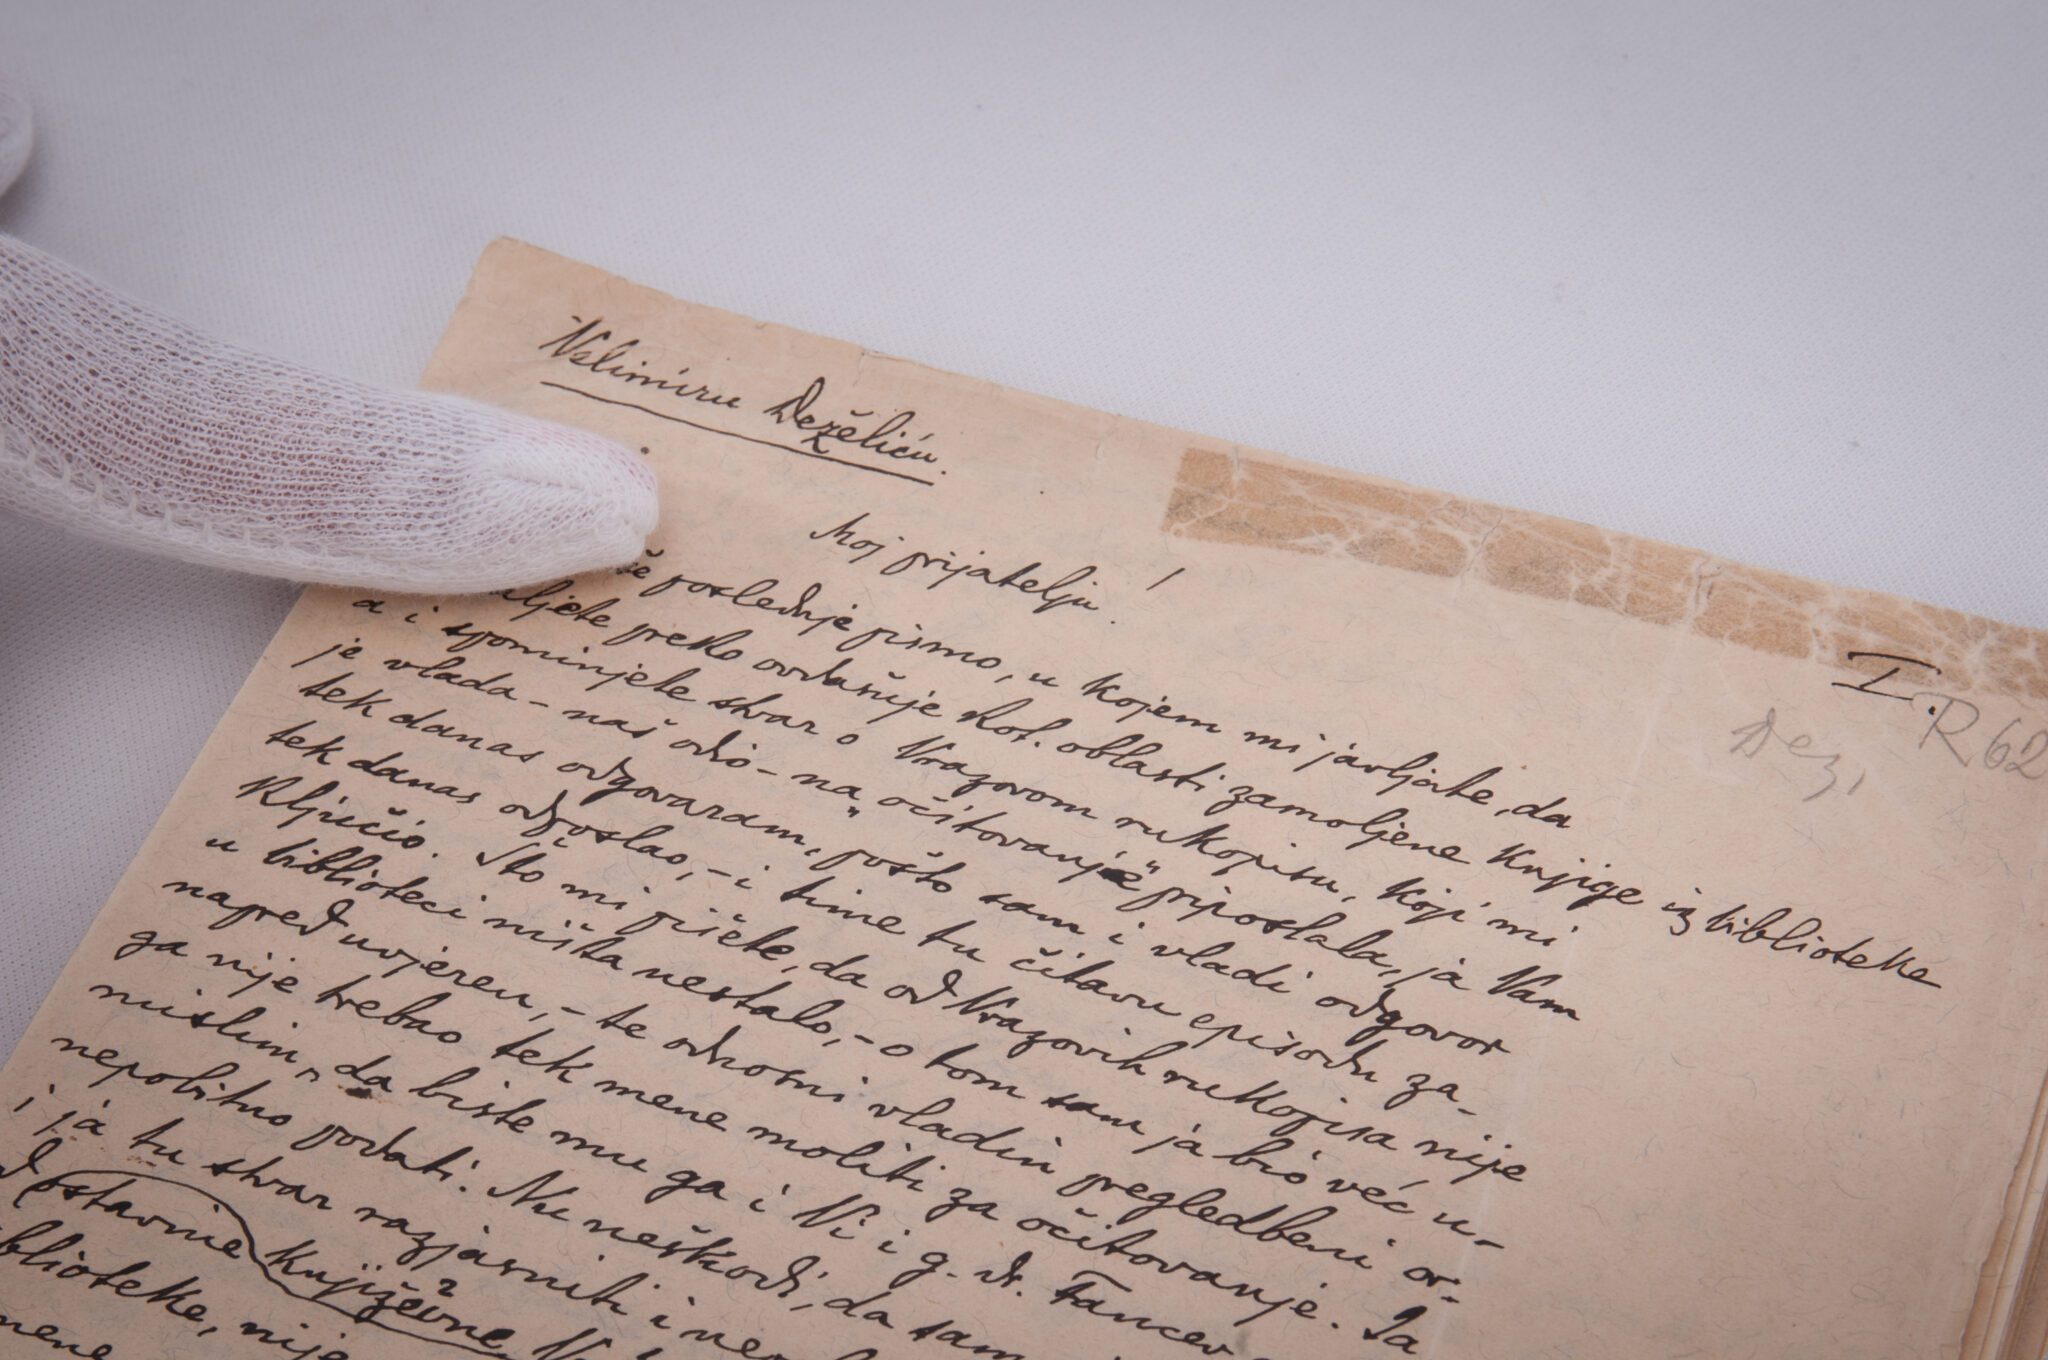 Velimiru Deželiću.
Moj prijatelju!
I.
Dez, R 62
še posljednje pismo, u kojem mi javljate, da
aljete preko ovdašnje kot. oblasti zamoljene knjige iz biblioteke
a i spominjete stvar o Vrazovom rukopisu, koji mi
je vlada - naš odio - na „očitovanje“ priposlala, ja Vam
tek danas odgovaram, pošto sam i vladi odgovor
tek danas odposlao, - i time tu čitavu episodu za-
ključio. Što mi pišete, da od Vrazovih rukopisa nije
u biblioteci ništa nestalo, - o tom sam ja bio već u-
napred uvjeren, - te odnosni vladin pregledbeni or-
ga nije trebao tek mene moliti za očitovanje. Ja
mislim, da biste mu ga i Vi i g. dr. Fancev
nepobitno podati. No neškodi, da sam
i ja tu stvar razjasnio i
ostavine književne
blioteke, nije
mene